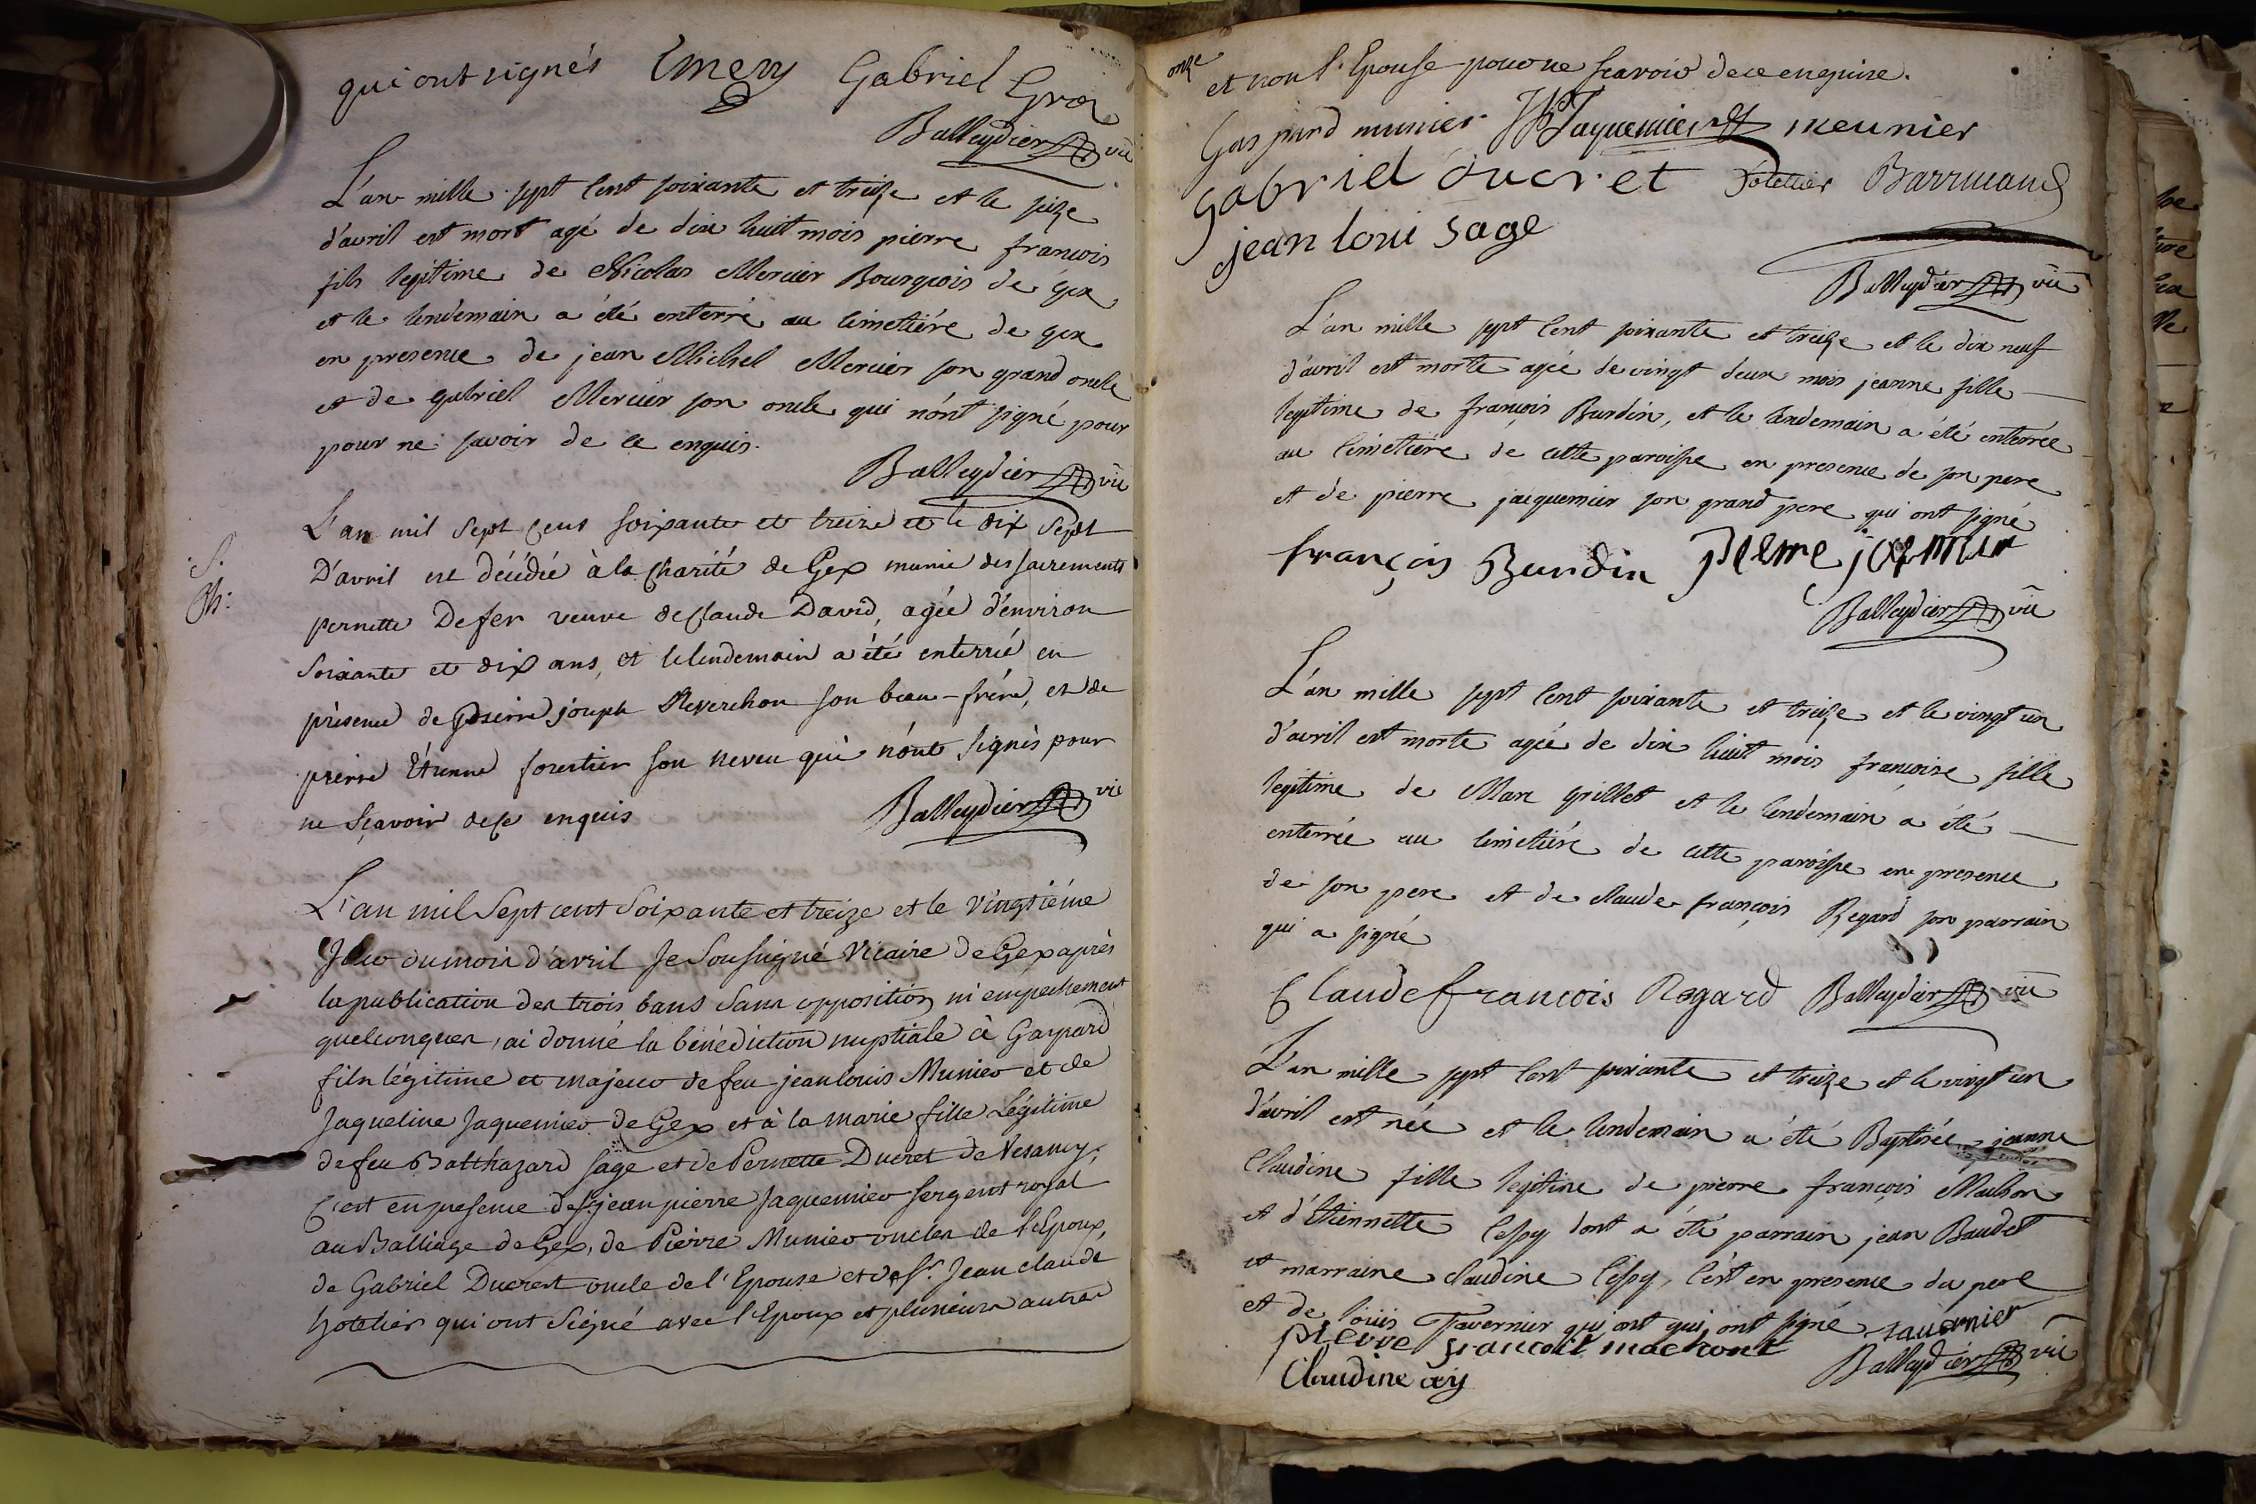 qui ont signés Emery Gabriel Gros
Balleydier vic
L'an mille sept cent soixante et treize et le seize
d'avril est mort agé de dix huit mois pierre françois
fils legitime de Nicolas Mercier Bourgeois de gex
et le lendemain a été enterré au cimetiére de gex
en presence de jean Michel Mercier son grand oncle
et de gabriel Mercier son oncle qui n'ont signé pour
pour ne savoir de ce enquis.
Balleydier vic
L'an mil sept cent soixante et treize et le dix sept
D'avril est décédée à la Charité de Gex munie des sacrements
S.
Ch:
pernette Defer veuve de Claude David, agée d'environ
soixante et dix ans, et le lendemain a été enterré en
présence de pierre joseph Reverchon son beau-frére, et de
pierre Etienne forestier son neveu qui n'ont signés pour
ne sçavoir de ce enquis
Balleydier vic
L'an mil sept cent soixante et treize et le vingtiéme
Jour du mois d'avril Je soussigné Vicaire de Gex après
la publication des trois bans sans opposition ni empechement
quelconques, ai donné la bénédiction nuptiale à Gaspard
fils légitime et majeur de feu jean louis Munier et de
Jaqueline Jaquemier de Gex et à la marie fille Légitime
de feu Balthazard sage et de Pernette Ducret de Vesancy;
C'est en presence de sr jean pierre Jaquemier sergent royal
au Balliage de Gex, de Pierre Munier oncles de l'Epoux,
de Gabriel Ducrest oncle de l'Epouse et de sr. Jean claude
hotelier qui ont Signé avec l'Epoux et plusieurs autres
onze
et non l'Epouse pour ne scavoir de ce enquise.
Gaspard munier Jaquemier meunier
gabriel ducret hotellier Barrucand
jean loui sage
Balleydier vic
L'an mille sept cent soixante et treize et le dix neuf
d'avril est morte agée de vingt deux mois jeanne fille
legitime de françois Burdin, et le lendemain a été enterrée
au cimetiere de cette paroisse en presence de son pere
et de pierre jacquemier son grand pere qui ont signé
françois Burdin pierre jaqmier
Balleydier vic
L'an mille sept cent soixante et treize et le vingt un
d'avril est morte agée de dix huit mois françoise fille
legitime de Marc grillet et le lendemain a été
enterrée au cimetiére de cette paroisse en presence
de son pere et de claude françois Regard son parrain
qui a signé
Claude francois Regard Balleydier vic
L'an mille sept cent soixante et treize et le vingt un
d'avril est née et le lendemain a été Baptisée jeanne
Claudine fille legitime de pierre françois Machon
et d'Etiennette Cessy dont a été parrain jean Baudet
et marraine claudine Cessy, c'est en presence du pere
et de loüis Tavernier qui ont qui ont signé tavernier
pierre francoit machont
Balleydier vic
Claudine